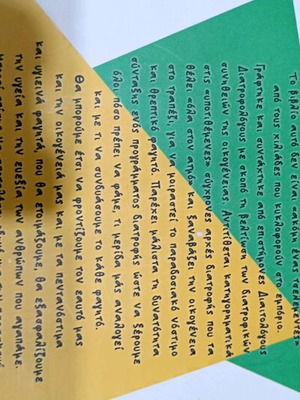 Το βιβλίο αυτό δεν είναι ακόμη ένας τσελεμεντές
από τους χιλιάδες που κυκλοφορούν στο εμπόριο.
Γράφτηκε και συντάχτηκε από επιστήμονες Διαιτολόγους
Διατροφολόγους με σκοπό τη βελτίωση των διατροφικών
συνηθειών της οικογένειας. Αντιτίθεται κατηγορηματικά
στις «υποτιθέμενες» σύγχρονες αρχές διατροφής που τα
θέλει «όλα στον ατμό» και ξαναβάζει την οικογένεια
στο τραπέζι, για να μοιραστεί το παραδοσιακό νόστιμο
και θρεπτικό φαγητό. Παρέχει μάλιστα τη δυνατότητα
σύνταξης ενός προγράμματος διατροφής ώστε να ξέρουμε
όλοι πόσο πρέπει να φάμε, τι μερίδα μάς αναλογεί
και με τι να συνδυάσουμε το κάθε φαγητό.
Θα μπορούμε έτσι να φροντίζουμε τον εαυτό μας
και την οικογένειά μας και με τα πεντανόστιμα
και υγιεινά φαγητά, που θα ετοιμάζουμε, θα εξασφαλίζουμε
την υγεία και την ευεξία των ανθρώπων που αγαπάμε.